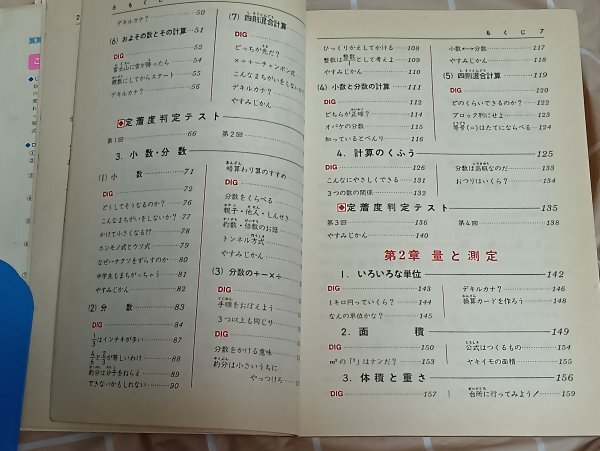 6 もくじ
デキルカナ? 50
(6) およその数とその計算 51
DIG 52
富士山に雪が降ったら 54
概数にしてからスタート 55
デキルカナ? 56
定着度判定テスト
第1回 66
第2回
3. 小数・分数
(1) 小数 71
DIG 72
どうしてそうなるのか? 76
こんなまちがいをしないか? 77
かけて小さくなる?? 78
ホンモノ式とウソ式 79
なぜハナクソをずらすのか 80
中学生もまちがっちゃう 81
やすみじかん 82
(2) 分数 83
DIG 84
1/3はインチキが多い 87
4/6と2/3が等しいわけ 88
約分は分子をねらえ 89
できないかもしれない 90
(7) 四則混合計算
DIG
どっちが先だ?
×+÷−チャンポン式
こんなまちがいをしないか
やすみじかん
暗算わり算のすすめ
DIG
分数をくらべる
親子・他人・しんせき
約数・倍数のお話
トンネル方式
やすみじかん
(3) 分数の+−×÷
DIG
手順をおぼえよう
3つ以上も同じサ
分数をかける意味
約分は小さいうちに
やっつけろ
もくじ 7
ひっくりかえしてかける 108
整数は整数として考えよ 109
やすみじかん 110
(4) 小数と分数の計算 111
DIG 112
どちらが正確? 114
オバケの分数 115
知っているとべんり 116
小数↔分数 117
やすみじかん 117
(5) 四則混合計算 119
DIG 119
どのくらいできるのか? 122
ブロック別にせよ 123
等号(=)はたてにならべる 124
4. 計算のくふう 125
DIG 126
こんなにやさしくできる 131
3つの数の関係 132
分数は高級なのだ 133
おつりはいくら? 134
定着度判定テスト 135
第3回 136
第4回 138
やすみじかん 140
第2章 量と測定
1. いろいろな単位 142
DIG 143
1キロ円っていくら? 144
なんの単位かな? 145
デキルカナ? 146
換算カードを作ろう 148
2. 面積 149
DIG 150
m²の「²」はナンだ? 153
公式はつくるもの 154
ヤキイモの面積 155
3. 体積と重さ 156
DIG 157
台所に行ってみよう! 159